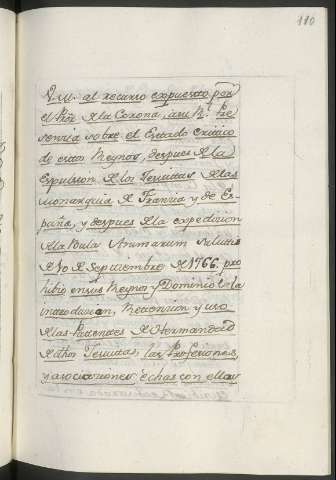 110
V.M. al recurso expuesto por
el Pror de la Corona, a su Rl. Pre
sencia sobre el Estado critico
de estos Reynos, despues de la
Expulsion de los Jesuitas de las
Monarquia de Francia y de Es-
paña, y despues de la expedicion
de la Bula Animarum Saluti
de 10 de Septiembre de 1766. pro
hibio en sus Reynos y Dominios la
introduccion, Retencion y uso
de las Patentes de Hermandad
de dhos Jesuitas, las Profesiones,
y asociaciones echas con ellas